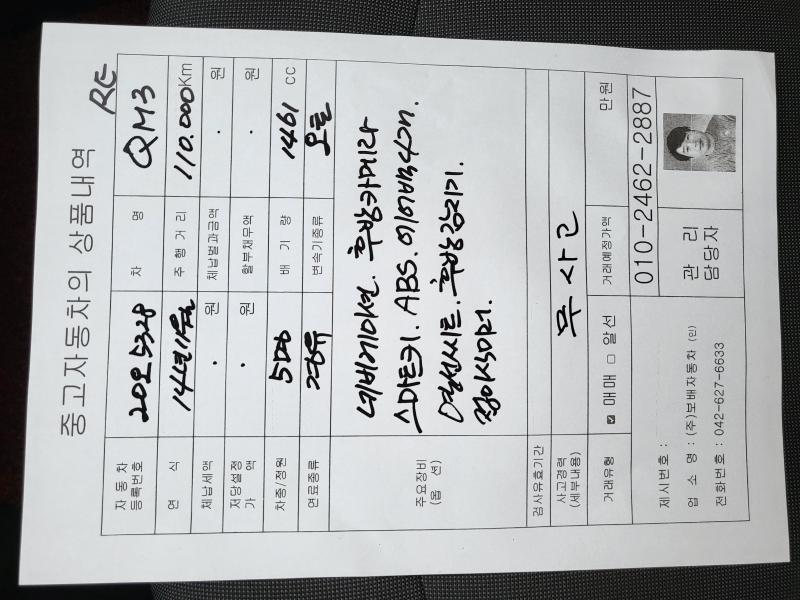 중고자동차의 상품내역
RE
자동차 등록번호 20오5328 차 명 QM3
연 식 14년 주행거리 110.000Km
체납세액 . 원 체납벌과금액 . 원
저당설정 가 액 . 원 할부채무액 . 원
차종/정원 5 배 기 량 1461 cc
연료종류 경유 변속기종류 오토
주요장비 (옵 션)
네비게이션. 후방카메라
스마트키. ABS. 에어백
열선시트. 후방감지기.
검사유효기간
사고경력 (세부내용) 무사고
거래유형 ☑ 매매 □ 알선 거래예정가액 만원
제시번호 :
업 소 명 : (주)보배자동차 (인)
전화번호 : 042-627-6633
관 리 담당자
010-2462-2887